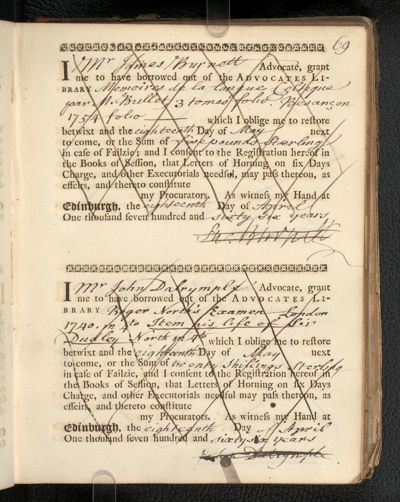 69
I Mr James Burnett Advocate, grant
me to have borrowed out of the ADVOCATES LI-
BRARY Memoires de la langue Celtique
par M. Bullet 3 tomes folio Besançon
1754 folio which I oblige me to restore
betwixt and the eighteenth Day of May next
to come, or the Sum of five pounds Sterling
in case of Failzie; and I consent to the Registration hereof in
the Books of Session, that Letters of Horning on six Days
Charge, and other Executorials needful, may pass thereon, as
effeirs, and thereto constitute
my Procurators. As witness my Hand at
Edinburgh, the eighteenth Day of April
One thousand seven hundred and sixty six years
Ja: Burnett
I Mr John Dalrymple Advocate, grant
me to have borrowed out of the ADVOCATES LI-
BRARY Roger North's Examen London
1740. in 4to Item his life of Sir
Dudley North in 4to which I oblige me to restore
betwixt and the eighteenth Day of May next
to come, or the Sum of twenty shillings Sterling
in case of Failzie, and I consent to the Registration hereof in
the Books of Session, that Letters of Horning on six Days
Charge, and other Executorials needful may pass thereon, as
effeirs, and thereto constitute
my Procurators. As witness my Hand at
Edinburgh, the eighteenth Day of April
One thousand seven hundred and sixty six years
Dalrymple